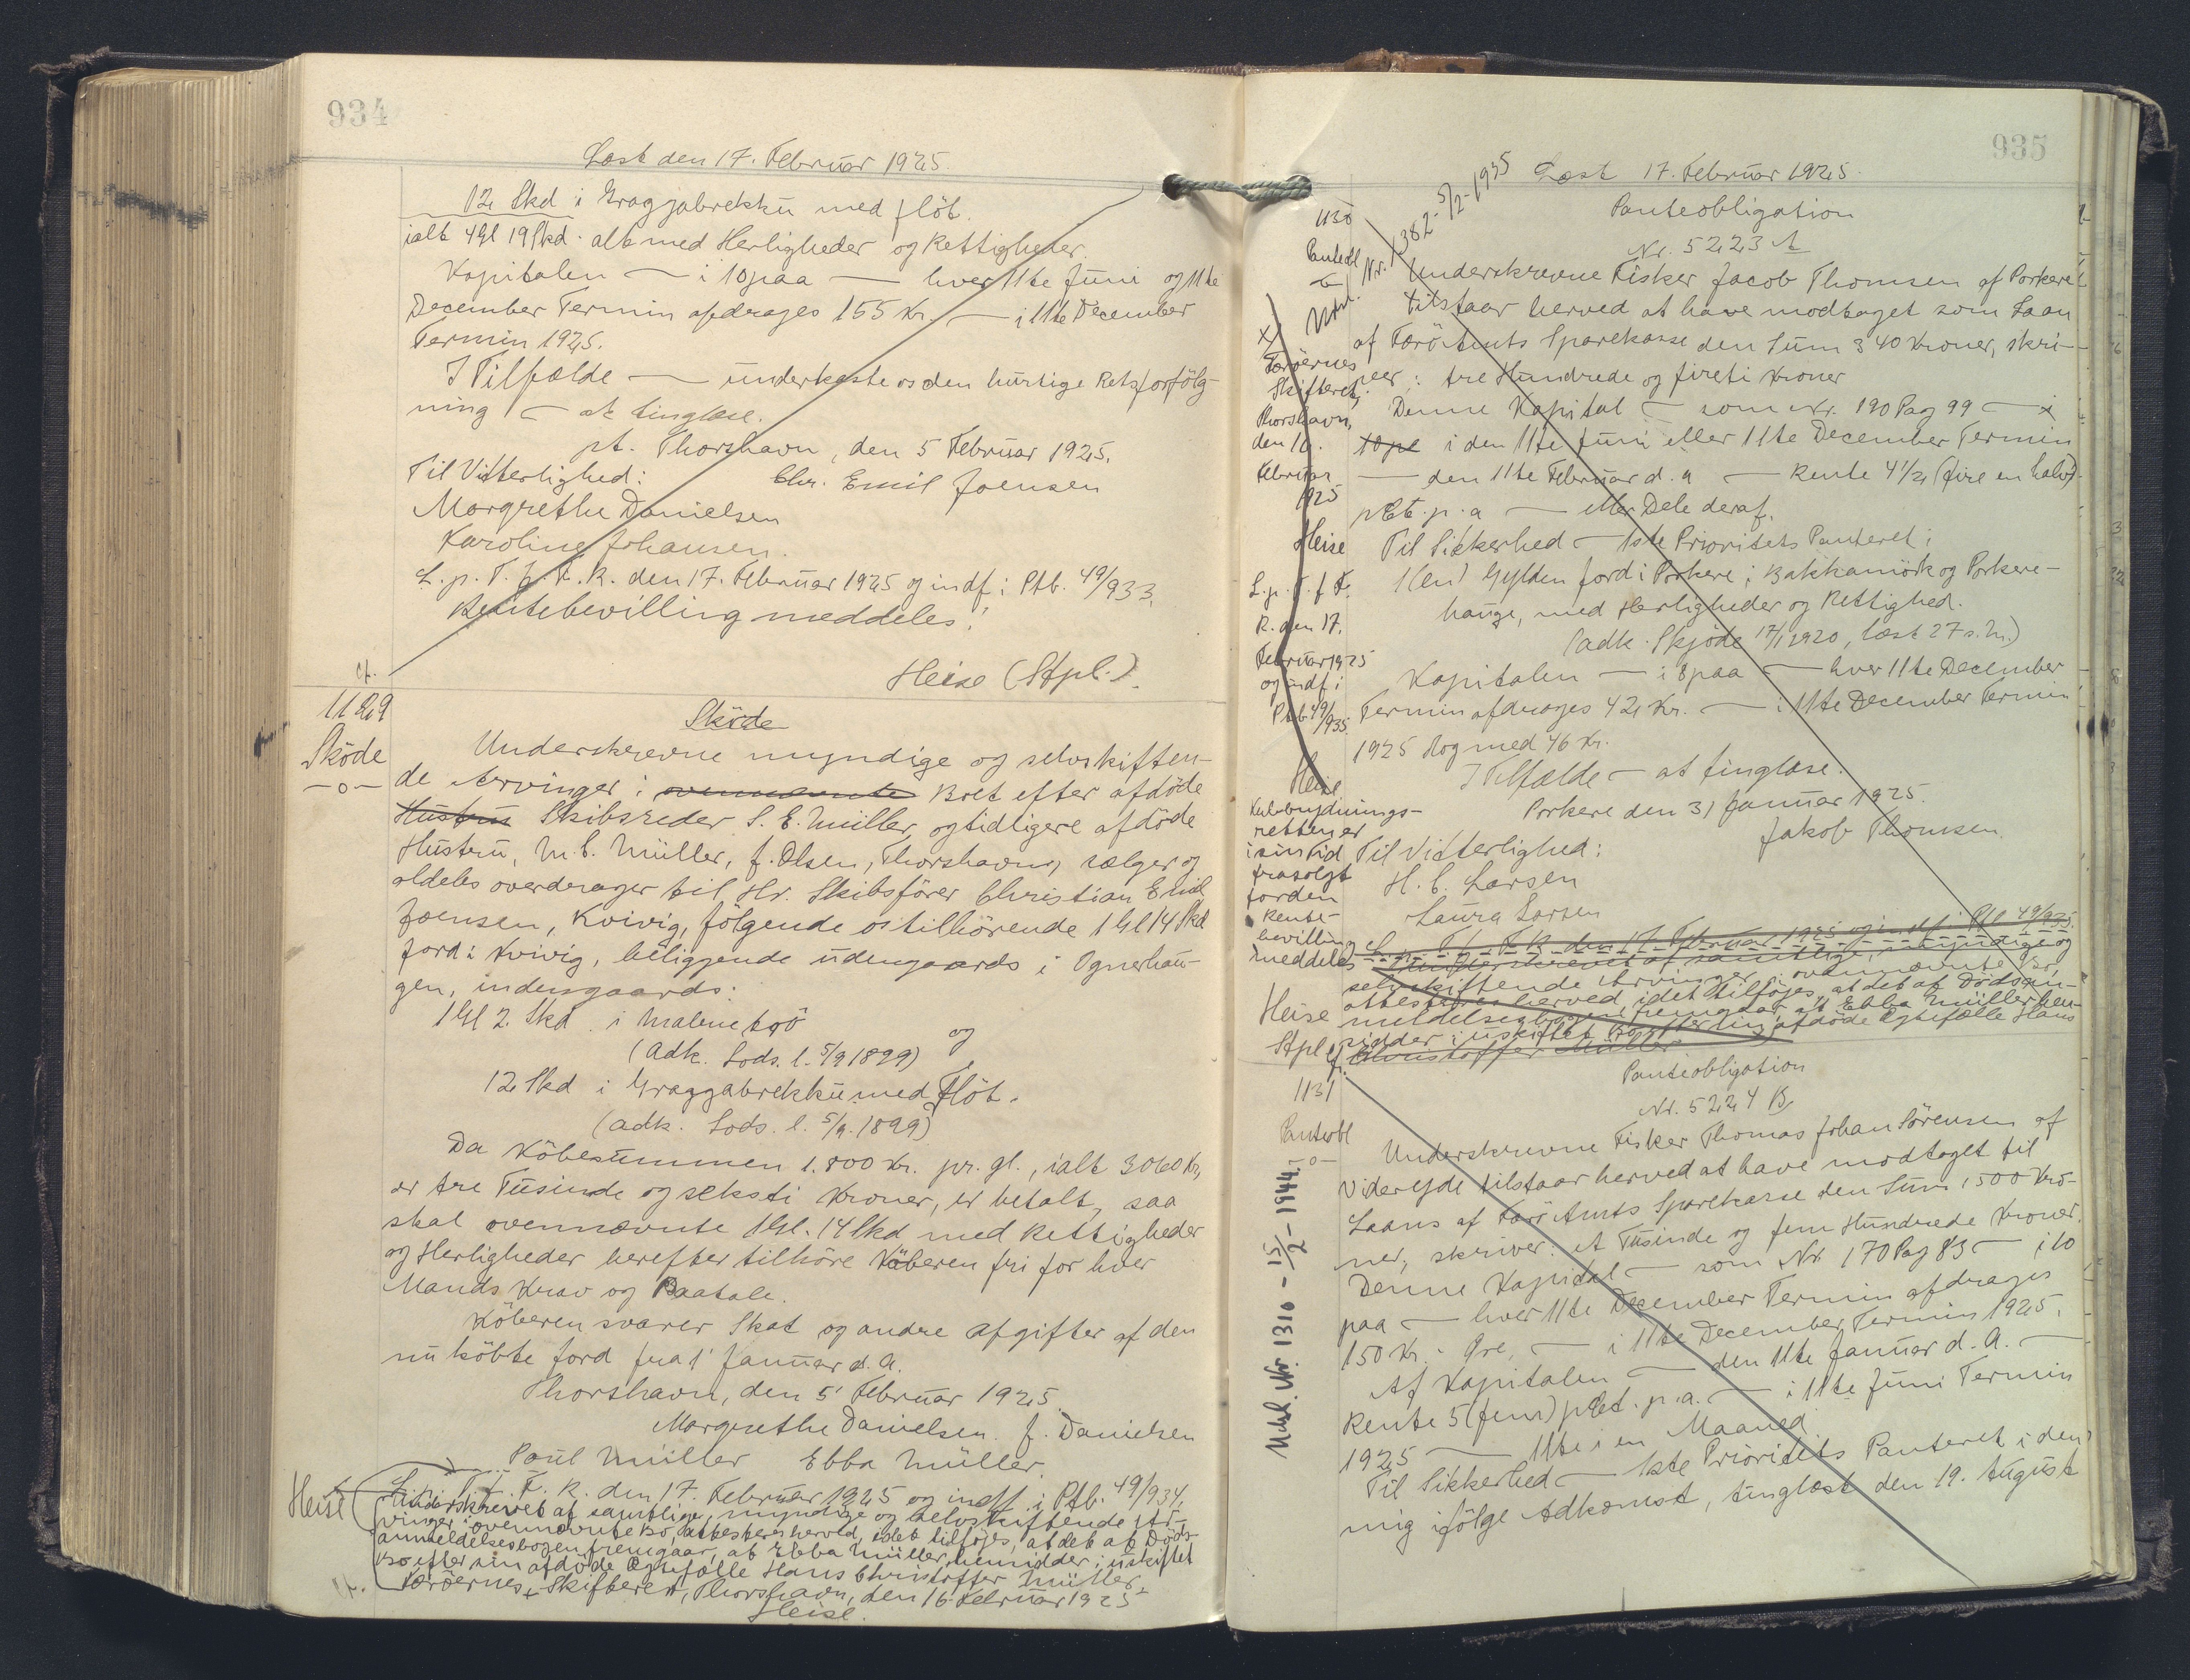 934
Læst den 17. Februar 1925.
12 Skd i Graggabrekku med flöt.
ialt 4 Gl 19 Skd. alt med Herligheder og Rettigheder.
Kapitalen — i 10 paa — hver 11te Juni og 11te
December Termin afdrages 155 Kr. — i 11te December
Termin 1925.
I Tilfælde — underkaste os den hurtige Retsforfölg-
ning — at tinglæse.
pt. Thorshavn, den 5 Februar 1925.
Til Vitterlighed: Chr. Emil Joensen
Margrethe Danielsen
Karoline Johansen.
L. p. T. f. F. R. den 17. Februar 1925 og indf. i Ptb. 49/933.
Rentebevilling meddeles!
Heise (Stpl.)
cf.
1129
Sköde
—o—
Sköde
Underskrevne myndige og selvskiften-
de Arvinger i ovennævnte Boet efter afdöde
Hustru Skibsreder S. E. Müller, og tidligere afdöde
Hustru, M. C. Müller, f. Olsen, Thorshavn, sælger og
aldeles overdrager til Hr. Skibsförer Christian Emil
Joensen, Kvivig, fölgende os tilhörende 1 Gl 14 Skd
Jord i Kvivig, beliggende udengaards i Ognerhau-
gen, indengaards:
1 Gl 2 Skd. i Malenetrö
(Adk. Lods. l. 5/9 1899) og
12 Skd i Graggabrekku med Flöt.
(adk. Lods. l. 5/9. 1899)
Da Köbesummen 1.800 Kr. pr. gl., ialt 3060 Kr,
er tre Tusinde og seksti Kroner, er betalt, saa
skal ovennævnte 1 Gl. 14 Skd med Rettigheder
og Herligheder herefter tilhöre Köberen fri for hver
Mands Krav og Paatale.
Köberen svarer Skat og andre Afgifter af den
nu köbte Jord fra 1' Januar d. A.
Thorshavn, den 5' Februar 1925.
Margrethe Danielsen. J. Danielsen
Poul Müller Ebba Müller.
L. p. T. f. F. R. den 17. Februar 1925 og indf. i Ptb. 49/934.
Heise
Underskrevet af samtlige, myndige og selvskiftende Ar-
vinger i ovennævnte Bo, attesteres herved, idet tilföjes, at det af Döds-
anmeldelsesbogen fremgaar, at Ebba Müller hensidder i uskiftet
Bo efter sin afdöde Ægtefælle Hans Christoffer Müller.
Færöernes Skifteret, Thorshavn, den 16. Februar 1925
Heise.
cf.
935
Læst 17. Februar 1925.
1130
Panteobl
Udsl. Nr. 1382 - 5/2-1935
Panteobligation
Nr. 5223 A
Underskrevne Fisker Jacob Thomsen af Porkere
tilstaar herved at have modtaget som Laan
af Færö Amts Sparekasse den Sum 340 Kroner, skri-
ver: tre Hundrede og fireti Kroner
Denne Kapital — som Nr. 190 Pag 99 — i
10 pc i den 11te Juni eller 11te December Termin
— den 11te Februar d. a — Rente 4 1/2 (fire en halv)
pCt. p. a — eller Dele deraf.
Til Sikkerhed — 1ste Prioritets Panteret i
1 (en) Gylden Jord i Porkere, i Bakkamörk og Porkere-
hauge, med Herligheder og Rettighed.
(adk. Skjöde 17/1 1920, læst 27 s. M.)
Kapitalen — i 8 paa — hver 11te December
Termin afdrages 42 Kr. — i 11te December Termin
1925 dog med 46 Kr.
I Tilfælde — at tinglæse.
Porkere den 31 Januar 1925.
Jakob Thomsen
Til Vitterlighed:
H. C. Larsen
Laura Larsen
L. p. T. f. F. R. den 17. Februar 1925 og indf. i Ptb 49/935.
Underskrevet af samtlige, myndige og
selvskiftende Arvinger i ovennævnte Bo,
attesteres herved, idet tilföjes, at det af Dödsan-
meldelsesbogen fremgaar, at Ebba Müller hen-
sidder i uskiftet Bo efter sin afdöde Ægtefælle Hans
Christoffer Müller
x)
Færöernes
Skifteret,
Thorshavn,
den 16.
Februar
1925
Heise
L. p. T. f. F.
R. den 17.
Februar 1925
og indf. i
Ptb 49/935
Heise
rettener
i sin Tid
frasolgt
Jorden
Rente-
bevilling
meddeles
Heise
Stpl
cf.
1131
Panteobl
—o—
Udsl. Nr. 1310 - 15/2 - 1944.
Panteobligation
Nr. 5224 B
Underskrevne Fisker Thomas Johan Sörensen af
Viderejde tilstaar herved at have modtaget til
Laans af Færö Amts Sparekasse den Sum 1500 Kro-
ner, skriver: et Tusinde og fem Hundrede Kroner.
Denne Kapital — som Nr. 170 Pag 83 — i 10
paa — hver 11te December Termin afdrages
150 Kr. - Øre, — i 11te December Termin 1925.
Af Kapitalen — den 11te Januar d. A. —
Rente 5 (fem) pCt. p. a. — i 11te Juni Termin
1925 — 11te i en Maaned.
Til Sikkerhed — 1ste Prioritets Panteret i den
mig ifölge Adkomst, tinglæst den 19. August